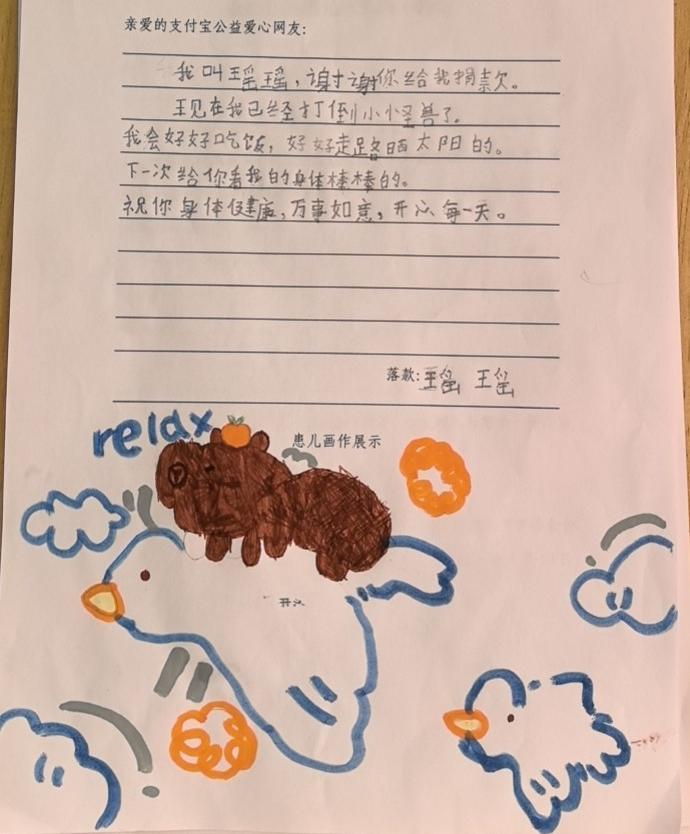 亲爱的支付宝公益爱心网友:
我叫瑶瑶,谢谢你给我捐款。
现在我已经打倒小怪兽了。
我会好好吃饭,好好走路晒太阳的。
下一次给你看我的身体棒棒的。
祝你身体健康,万事如意,开心每一天。
落款:瑶 瑶
relax
患儿画作展示
开心